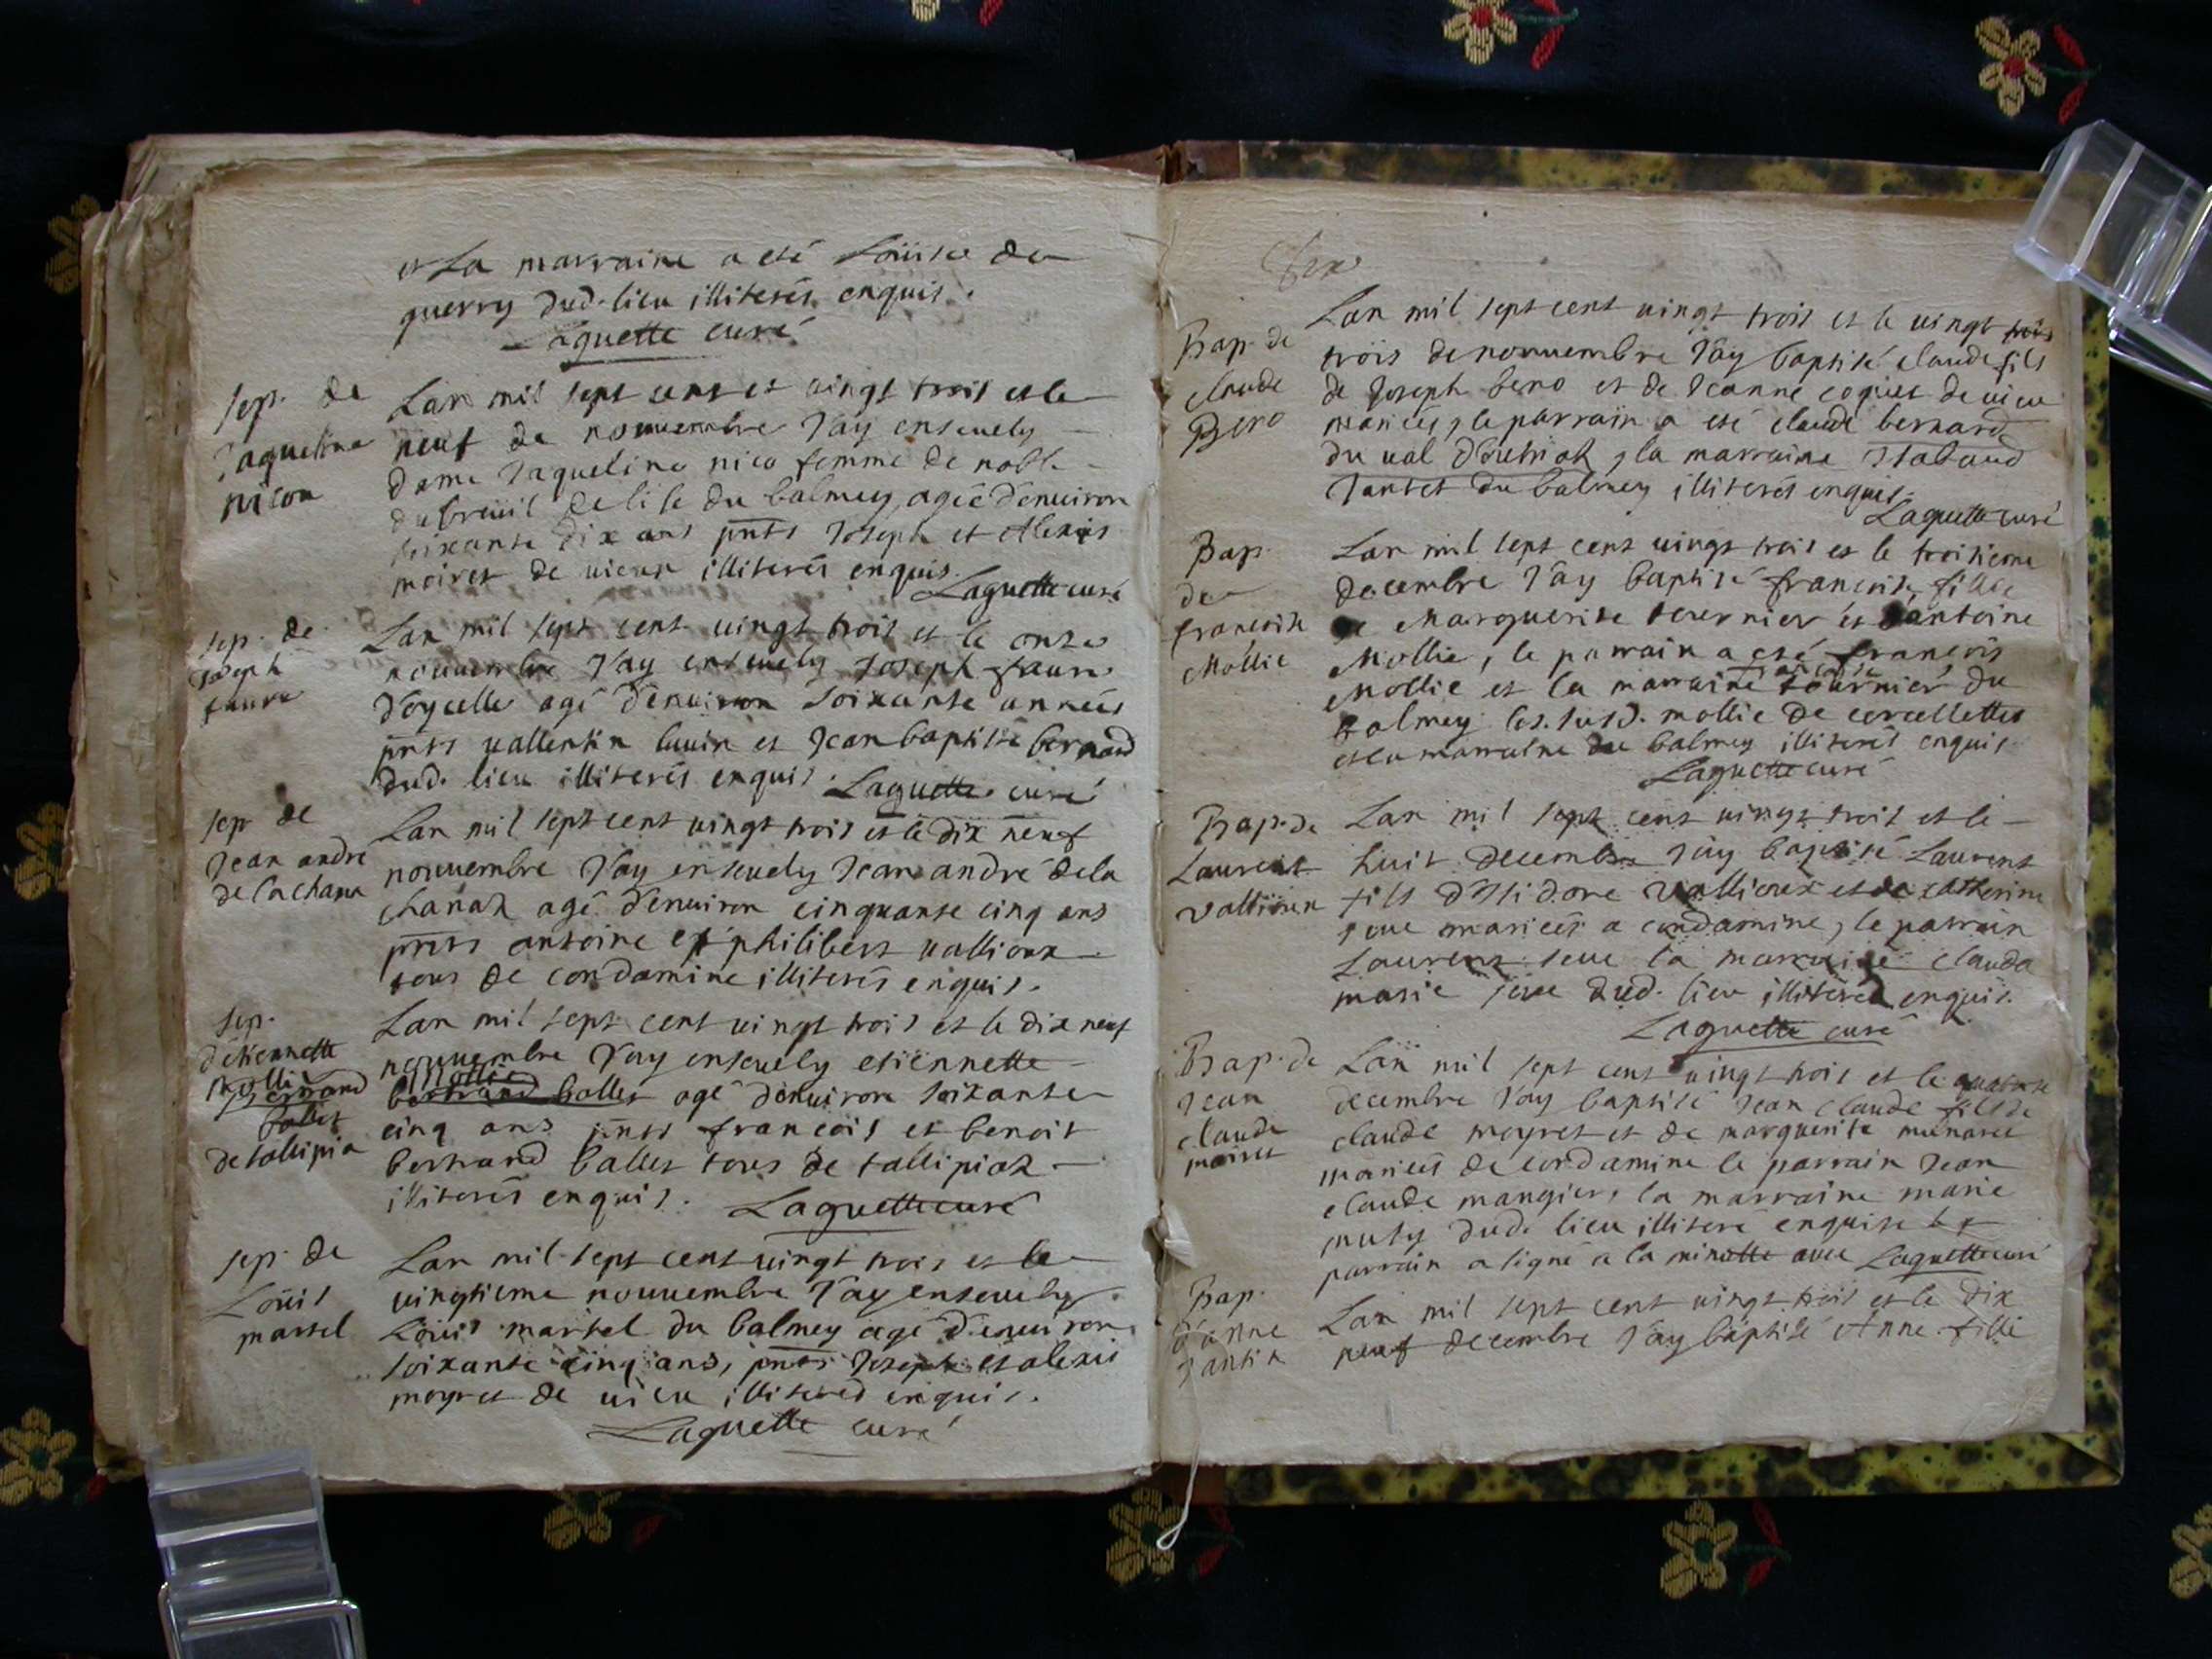 et La marraine a esté Loüise de
guerry dud. lieu illiterés enquis.
Laguette curé
sep. de
Jaqueline
nicou
Lan mil sept cent et vingt trois et le
neuf de nouuembre J'ay enseuely
dame Jaqueline nico femme de noble
dubreüil delisle du balmey, agée d'enuiron
soixante dix ans pnts Joseph et Alexis
moiret de uieux illiterés enquis.
Laguette curé
sep. de
Joseph
faure
Lan mil sept cent uingt trois et le onze
nouuembre J'ay enseuely Joseph faure
d'oycelle agé d'enuiron soixante années
pnts uallentin luuin et Jean baptiste bernard
dud. lieu illiterés enquis. Laguette curé
sep de
Jean andré
de lachana
Lan mil sept cent uingt trois et le dix neuf
nouuembre J'ay enseuely Jean andré dela
chanaz agé d'enuiron cinquante cinq ans
pnts antoine et philibert uallioux
tous de condamine illiterés enquis.
sep.
d'etiennette
mollie
bertrand
ballet
de tallipia
Lan mil sept cent uingt trois et le dix neuf
nouuembre J'ay enseuely etiennette
mollie
bertrand ballet agé d'enuiron soixante
cinq ans pnts françois et benoit
bertrand ballet tous de tallipiaz
illiterés enquis. Laguette curé
sep. de
Loüis
martel
Lan mil sept cent uingt trois et le
uingtieme nouuembre J'ay enseuely
Loüis martel du balmey agé d'enuiron
soixante cinq ans, pnts Joseph et alexis
moyret de uieu illiterés enquis.
Laguette curé
Bap. de
claude
Bero
Lan mil sept cent uingt trois et le uingt trois
trois de nouuembre J'ay baptisé claude fils
de Joseph bero et de Jeanne coquet de uieu
mariés, le parrain a esté claude bernard
du ual la marraine
Jantet du balmey illiterés enquis.
Laguette curé
Bap.
de
françoise
Mollie
Lan mil sept cent uingt trois et le troisieme
decembre J'ay baptisé françoise fille
de Marguerite tournier et antoine
Mollie, le parrain a esté françois
Mollie et la marraine tournier du
balmey les. susd. mollie de cercellettes
et la marraine du balmey illiterés enquis
Laguette curé
Bap. de
Laurent
Vallioux
Lan mil sept cent uingt trois et le
huit decembre J'ay baptisé Laurent
fils d'Isidore Vallioux et de catherine
seue mariés a condamine, le parrain
Laurent seue la marraine clauda
marie seue dud. lieu illiterés enquis.
Laguette curé
Bap. de
Jean
claude
moiret
Lan mil sept cent uingt trois et le quatorze
decembre J'ay baptisé Jean claude fils de
claude moyret et de marguerite
mariés de condamine le parrain Jean
claude mangier, la marraine marie
dud. lieu illitere enquise le
parrain a signé a la minutte auec Laguette curé
Bap.
d'anne
Jantet
Lan mil sept cent uingt trois et le dix
neuf decembre J'ay baptisé Anne fille